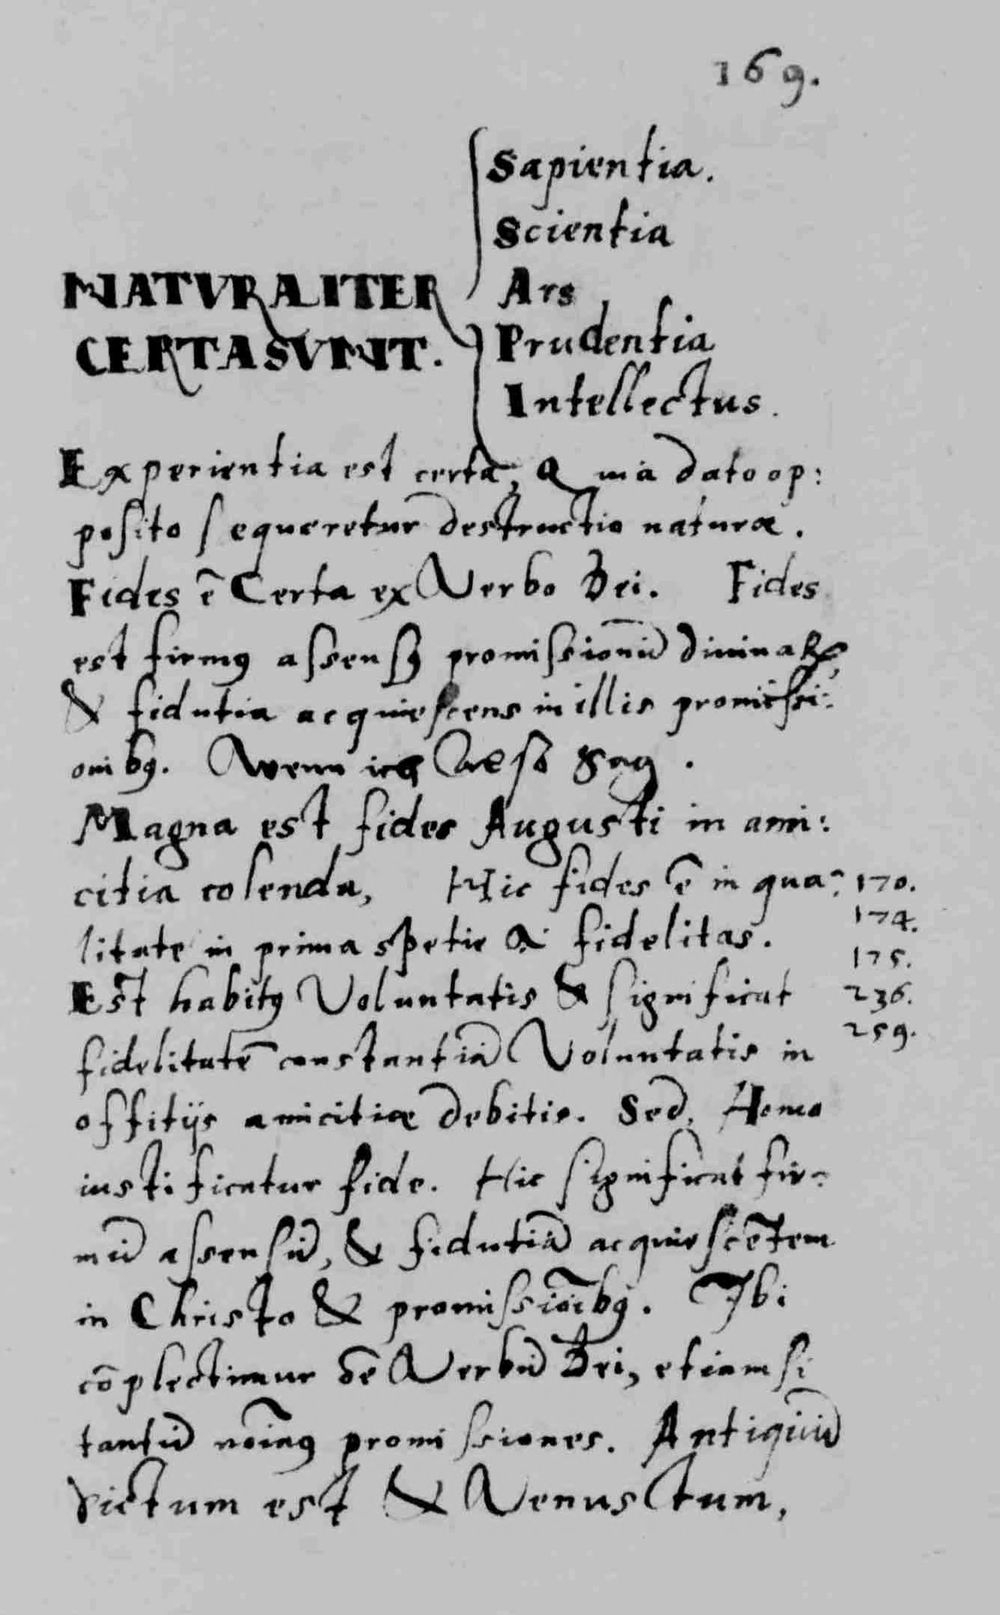 169.
Sapientia.
Scientia
NATVRALITER Ars
CERTA SVNT. Prudentia
Intellectus.
Experientia est certa, Quia dato op:
posito sequeretur destructio naturæ.
Fides ē Certa ex Verbo Dei. Fides
est firmꝰ assensꝰ promissionū diuinaꝝ
& fidutia acquiescens in illis promissi:
onibꝰ. Wenn ich also sag.
Magna est fides Augusti in ami:
citia colenda, Hic fides ē in qua: 170.
litate in prima spetie & fidelitas. 174.
175.
Est habitꝰ Voluntatis & significat 236.
fidelitatē constantiā Voluntatis in 259.
offitijs amicitiæ debitis. Sed, Homo
iustificatur fide. Hic significat fir:
mū assensū, & fidutiā acquiescētem
in Christo & promissiōibꝰ. Ibi
cōplectimur oē Verbū Dei, etiamsi
tantū noīamꝰ promissiones. Antiquū
dictum est & Venustum,